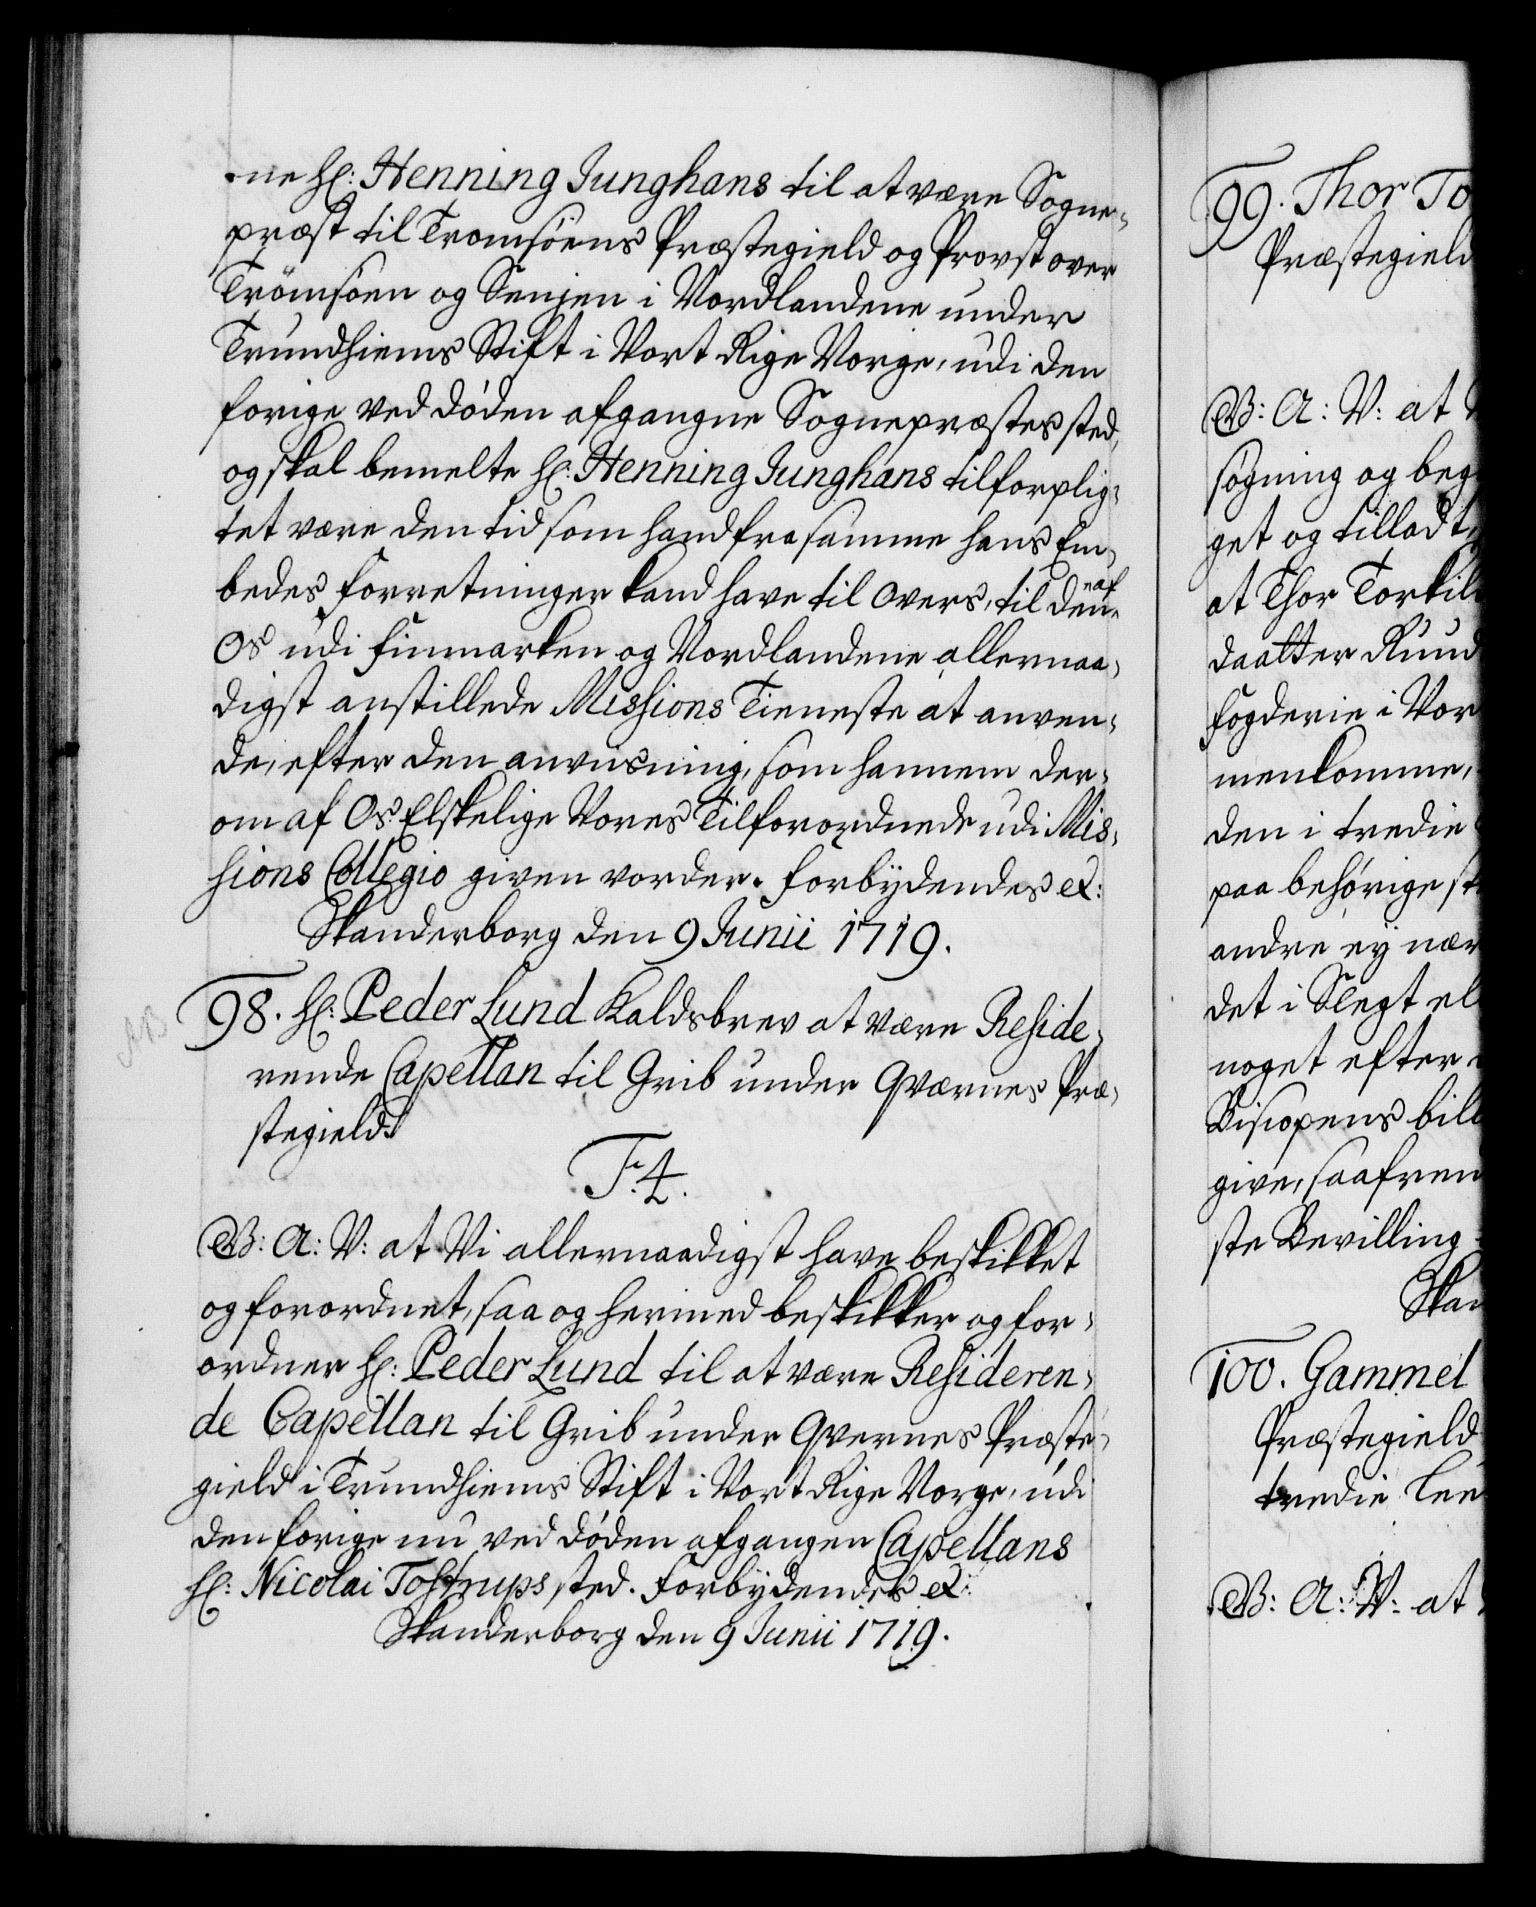 -ne Hr: Henning Junghans til at være Sogne-
præst til Tromsøens Præstegield og Provst over
Tromsøen og Senjen i Nordlandene under
Trundhiems Stift i Vort Rige Norge, udi den
forige ved døden afgangne Sognepræstes sted,
og skal bemelte Hr: Henning Junghans tilforplig-
tet være den tid som hand fra samme hans Em-
bedes Forretninger kand have til overs, til den af
Os udi Finmarken og Nordlandene allernaa-
digst anstillede Missions Tieneste at anven-
de, efter den anviisning, som hannem der-
om af Os Elskelige Vores Tilforordnede udi Mis-
sions Collegio given vorder. Forbydendes etc:
Skanderborg den 9 Junii 1719.
98. Hr: Peder Lund Kaldsbrev at være Reside-
rende Capellan til Grib under Qvernes Præ-
stegield.
F. 4.
G: A: V: at Vi allernaadigst have beskikket
og forordnet, saa og hermed beskikker og for-
ordner Hr: Peder Lund til at være Resideren-
de Capellan til Grib under Qvernes Præste-
gield i Trundhiems Stift i Vort Rige Norge, udi
den forige nu ved døden afgangen Capellans
Hr: Nicolai Tostrups sted. Forbydendes etc:
Skanderborg den 9 Junii 1719.
99. Thor To
Præstegield
G: A: V: at
søgning og beg
get og tilladt,
at Thor Torkil
daatter Ruud
Fogderie i Nor
menkomme,
den i tredie
paa behørige st
andre ey nær
det i Slegt el
noget efter
Bispens bill
give, saafrem
ste Bevilling
Skan
100. Gammel
Præstegield
tredie Lee
G: A: V: at